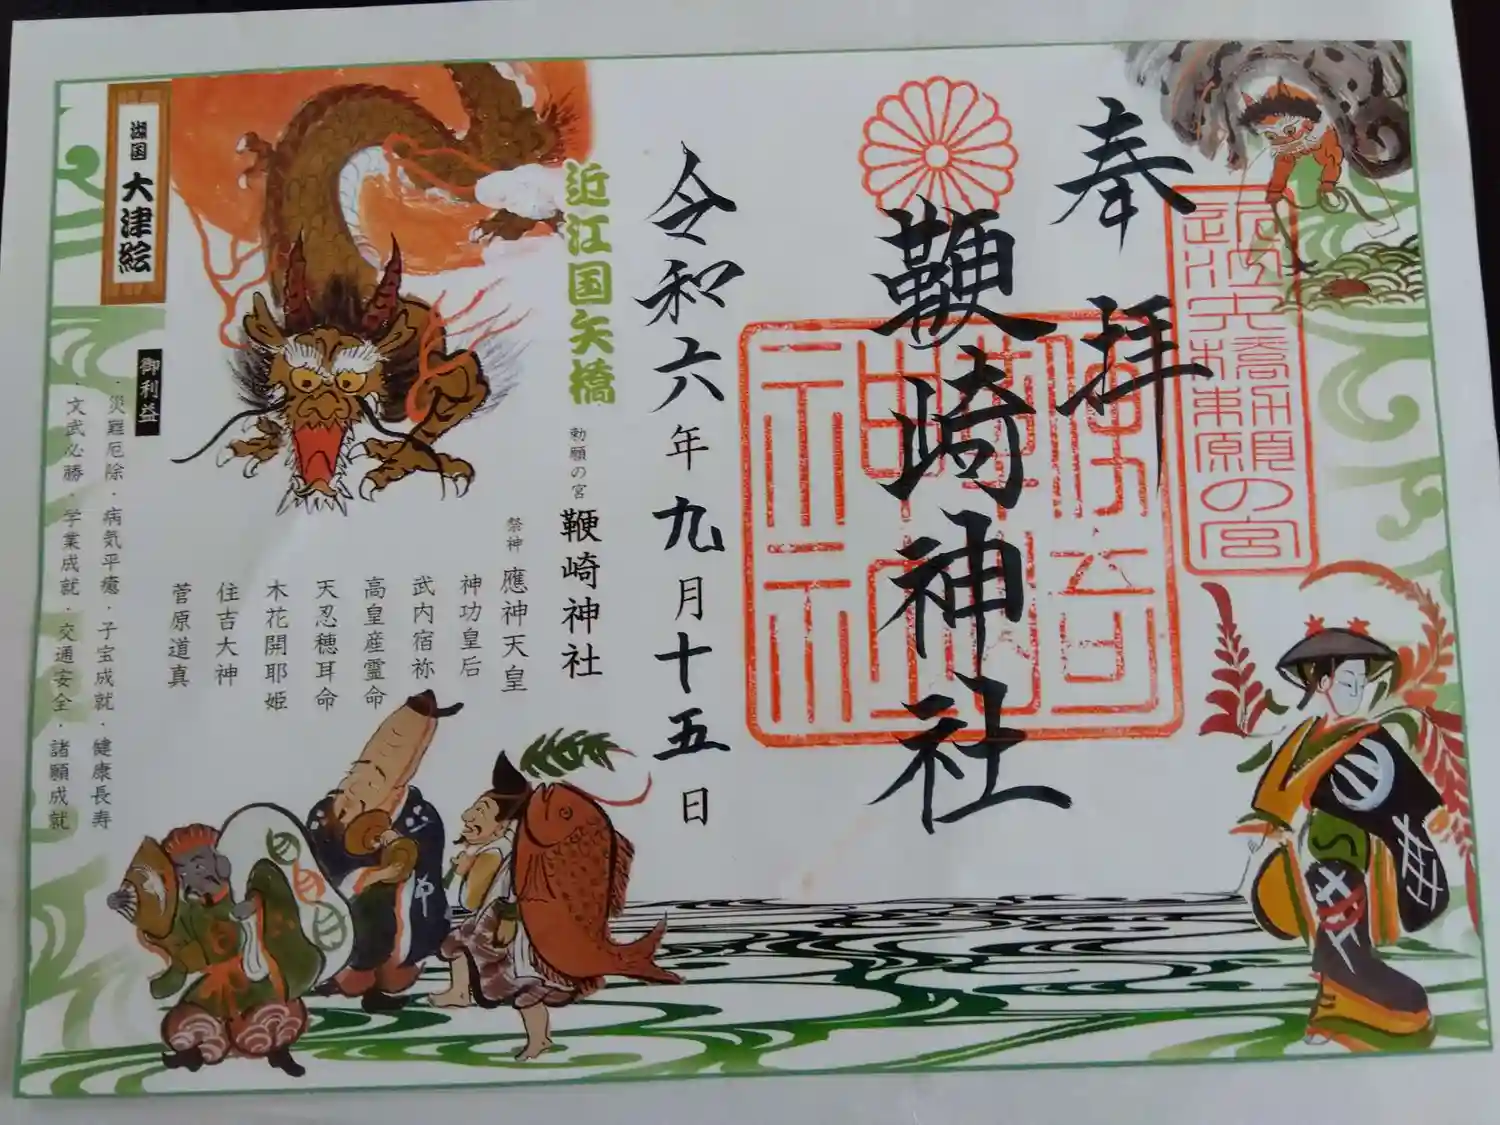 奉拝
近江矢橋勅願の宮
鞭崎神社
令和六年九月十五日
近江国矢橋
勅願の宮 鞭崎神社
祭神 應神天皇
神功皇后
武内宿祢
高皇産霊命
天忍穂耳命
木花開耶姫
住吉大神
菅原道真
湖国 大津絵
御利益
・災難厄除・病気平癒・子宝成就・健康長寿
・文武必勝・学業成就・交通安全・諸願成就